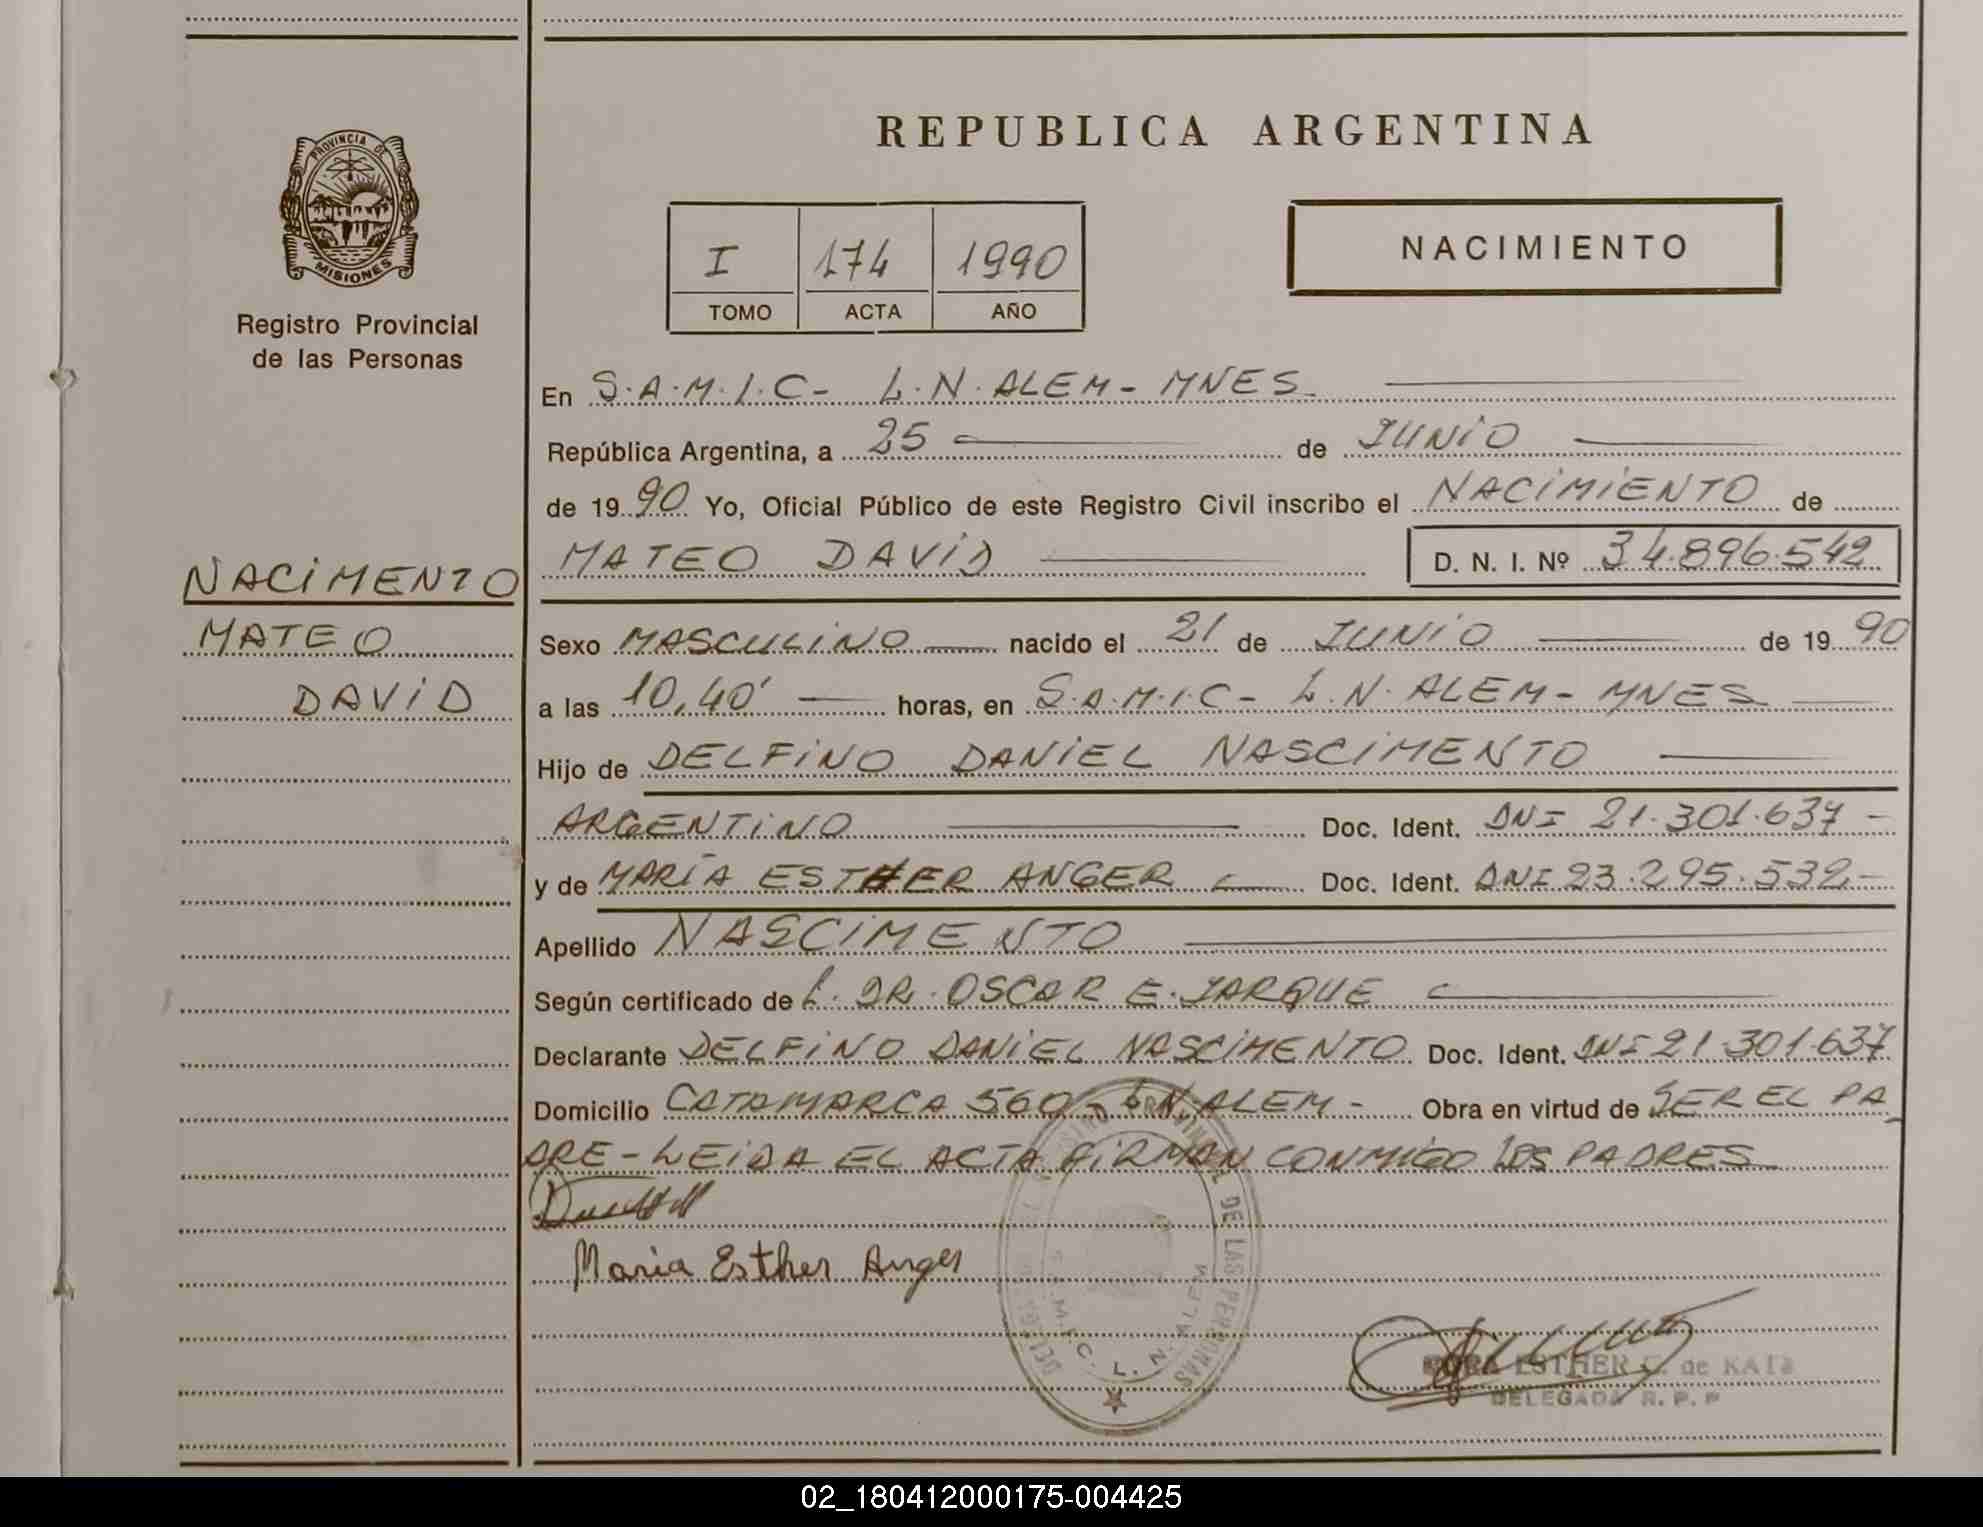 REPUBLICA ARGENTINA
PROVINCIA DE
MISIONES
Registro Provincial
de las Personas
I 174 1990
TOMO ACTA AÑO
NACIMIENTO
En S.A.M.I.C- L.N.ALEM- MNES
República Argentina, a 25 de JUNIO
de 1990 Yo, Oficial Público de este Registro Civil inscribo el NACIMIENTO de
MATEO DAVID D. N. I. Nº 34.896.542
NACIMENTO
MATEO
DAVID
Sexo MASCULINO nacido el 21 de JUNIO de 1990
a las 10,40' horas, en S.A.M.I.C- L.N.ALEM- MNES
Hijo de DELFINO DANIEL NASCIMENTO
ARGENTINO Doc. Ident. DNI 21.301.637-
y de MARÍA ESTHER ANGER Doc. Ident. DNI 23.295.532.-
Apellido NASCIMENTO
Según certificado de L. DR. OSCAR E. JARQUE
Declarante DELFINO DANIEL NASCIMENTO Doc. Ident. DNI 21.301.637
Domicilio CATAMARCA 560- L.N.ALEM- Obra en virtud de SER EL PA-
DRE-LEIDA EL ACTA FIRMAN CONMIGO LOS PADRES
Maria Esther Anger
DE LAS PERSONAS
S.A.M.I.C. L. N. ALEM
ESTHER de
DELEGADA R. P. P
02_180412000175-004425